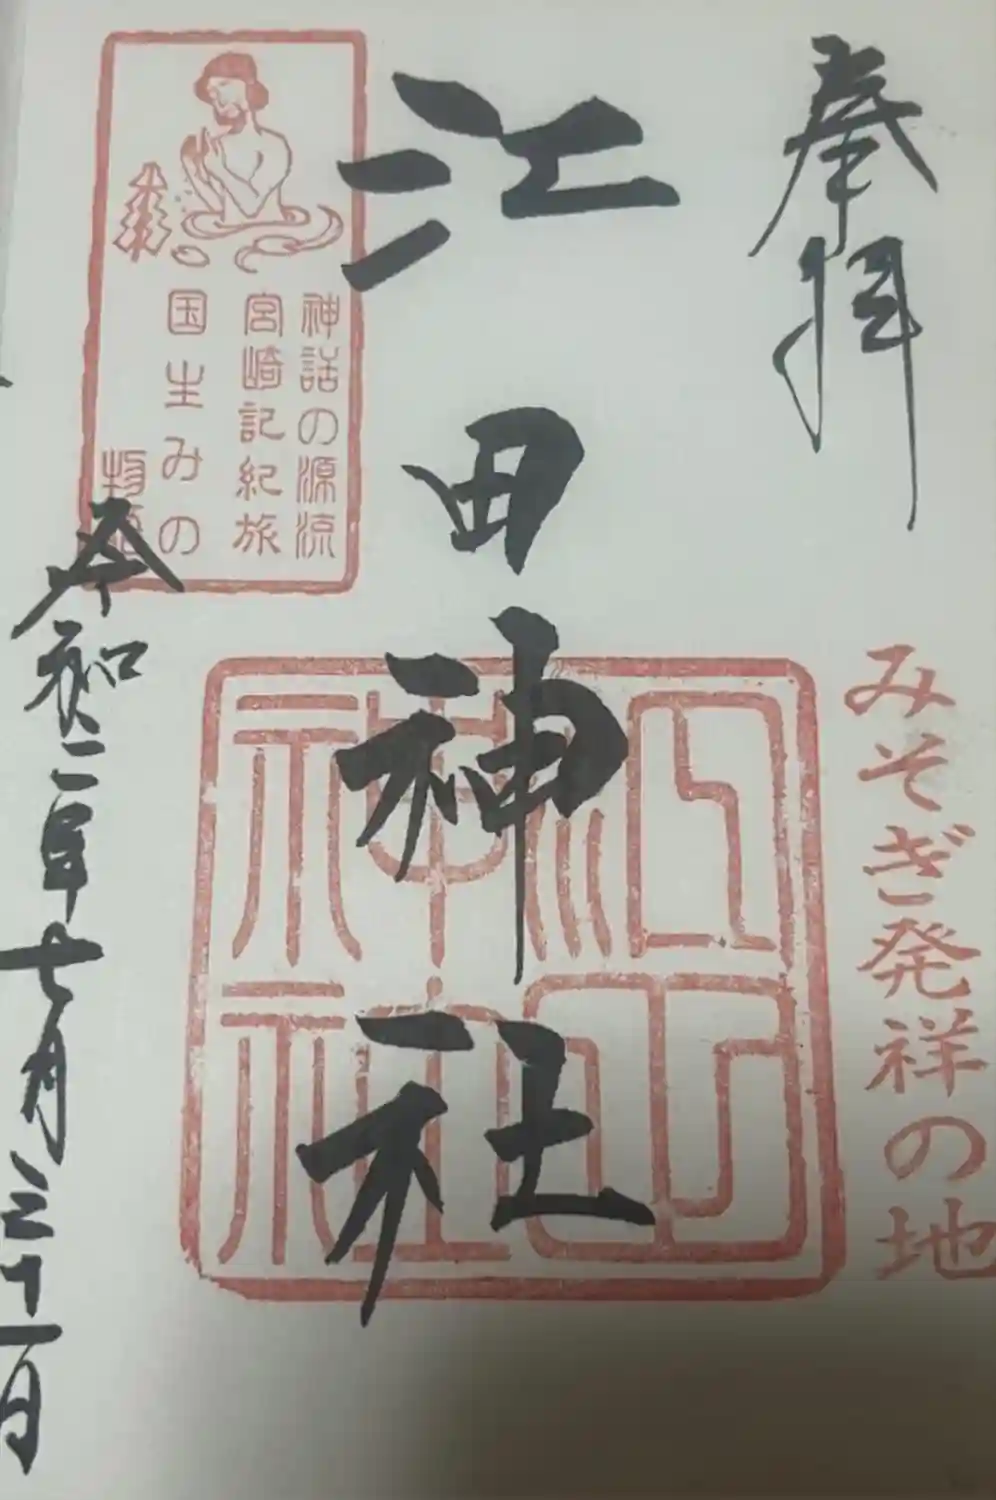 奉拝
みそぎ発祥の地
江田神社
江田
神社
神話の源流
宮崎記紀旅
国生みの
物語
令和二年七月三十一日